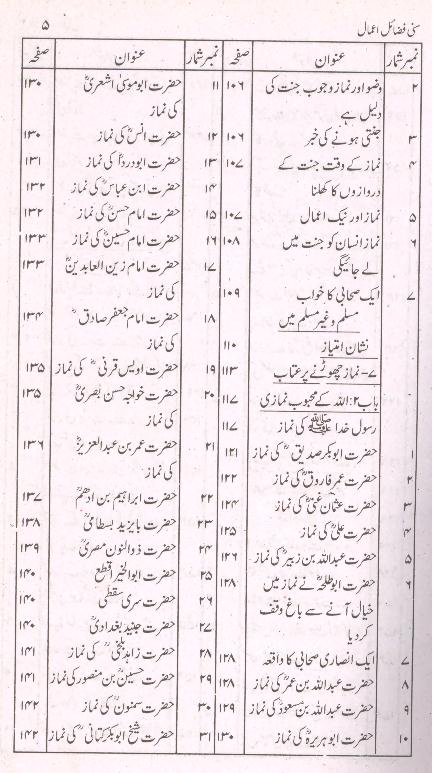 سنی فضائل اعمال ۵
نمبر شمار عنوان صفحہ
۲ وضو اور نماز وجوب جنت کی ۱۰۶
دلیل ہے
۳ جنتی ہونے کی خبر ۱۰۶
۴ نماز کے وقت جنت کے ۱۰۷
دروازوں کا کھلنا
۵ نماز اور نیک اعمال ۱۰۷
۶ نماز انسان کو جنت میں ۱۰۸
لے جائیگی
۷ ایک صحابی کا خواب ۱۰۹
مسلم و غیر مسلم میں
نشان امتیاز ۱۱۰
۷- نماز چھوڑنے پر عتاب ۱۱۳
باب ۲: اللہ کے محبوب نمازی ۱۱۷
رسول خدا ﷺ کی نماز ۱۱۷
۱ حضرت ابوبکر صدیقؓ کی نماز ۱۲۱
۲ حضرت عمر فاروقؓ کی نماز ۱۲۲
۳ حضرت عثمان غنیؓ کی نماز ۱۲۴
۴ حضرت علیؓ کی نماز ۱۲۵
۵ حضرت عبداللہ بن زبیرؓ کی نماز ۱۲۶
۶ حضرت ابوطلحہؓ نے نماز میں ۱۲۸
خیال آنے سے باغ وقف
کر دیا
۷ ایک انصاری صحابی کا واقعہ ۱۲۸
۸ حضرت عبداللہ بن عمرؓ کی نماز ۱۲۸
۹ حضرت عبداللہ بن مسعودؓ کی نماز ۱۲۹
۱۰ حضرت ابوہریرہؓ کی نماز ۱۳۰
نمبر شمار عنوان صفحہ
۱۱ حضرت ابوموسیٰ اشعریؓ ۱۳۰
کی نماز
۱۲ حضرت انسؓ کی نماز ۱۳۰
۱۳ حضرت ابودرداؓ کی نماز ۱۳۱
۱۴ حضرت ابن عباسؓ کی نماز ۱۳۲
۱۵ حضرت امام حسنؓ کی نماز ۱۳۲
۱۶ حضرت امام حسینؓ کی نماز ۱۳۳
۱۷ حضرت امام زین العابدینؓ ۱۳۳
کی نماز
۱۸ حضرت امام جعفر صادقؓ ۱۳۴
کی نماز
۱۹ حضرت اویس قرنیؓ کی نماز ۱۳۵
۲۰ حضرت خواجہ حسن بصریؒ ۱۳۵
کی نماز
۲۱ حضرت عمر بن عبدالعزیزؒ ۱۳۶
کی نماز
۲۲ حضرت ابراہیم بن ادھمؒ ۱۳۷
۲۳ حضرت بایزید بسطامیؒ ۱۳۸
۲۴ حضرت ذوالنون مصریؒ ۱۳۹
۲۵ حضرت ابوالخیر اقطع ۱۴۰
۲۶ حضرت سری سقطیؒ ۱۴۰
۲۷ حضرت جنید بغدادیؒ ۱۴۰
۲۸ حضرت زاہد بلخیؒ کی نماز ۱۴۱
۲۹ حضرت حسینؒ بن منصور کی نماز ۱۴۱
۳۰ حضرت سمنونؒ کی نماز ۱۴۲
۳۱ حضرت شیخ ابوبکر کتانیؒ کی نماز ۱۴۲